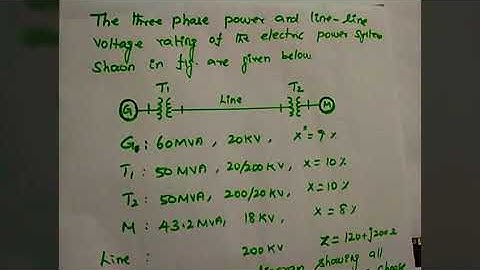 The three phase power and line-line
voltage rating of the electric power system
shown in fig. are given below
T1 T2
G Line M
G : 60MVA, 20KV, X = 9 %
T1 : 50MVA, 20/200KV, X = 10 %
T2 : 50MVA, 200/20KV, X = 10 %
M : 43.2MVA, 18KV, X = 8 %
Line : 200KV Z = 120+j200Ω
showing all